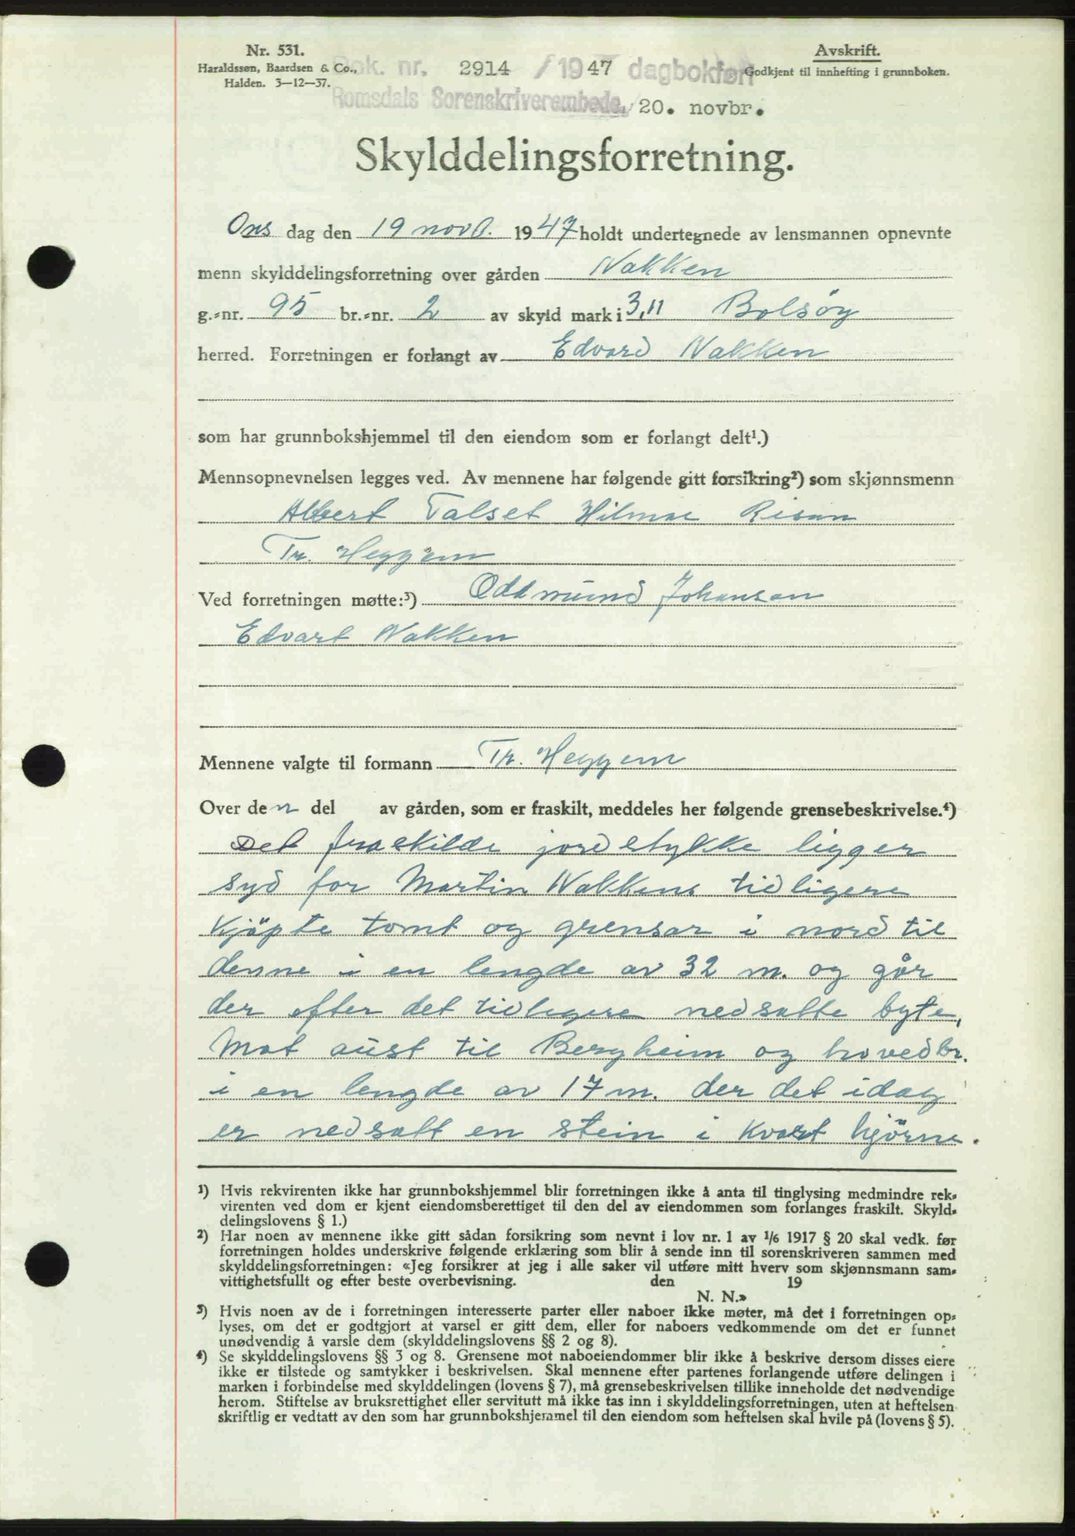 Nr. 531.
Haraldssen, Baardsen & Co.,
Halden. 3—12—37.
Dok. nr. 2914 / 1947 dagbokført
Romsdals Sorenskriverembede, 20. novbr.
Avskrift.
Godkjent til innhefting i grunnboken.
Skylddelingsforretning.
Ons dag den 19 novb. 1947 holdt undertegnede av lensmannen opnevnte
menn skylddelingsforretning over gården Nakken
g.-nr. 95 br.-nr. 2 av skyld mark i 3,11 Bolsøy
herred. Forretningen er forlangt av Edvard Nakken
som har grunnbokshjemmel til den eiendom som er forlangt delt¹.)
Mennsopnevnelsen legges ved. Av mennene har følgende gitt forsikring²) som skjønnsmenn
Albert Talset Hilmar Risan
Tr. Heggem
Ved forretningen møtte:³) Oddmund Johansen
Edvart Nakken
Mennene valgte til formann Tr. Heggem
Over den del av gården, som er fraskilt, meddeles her følgende grensebeskrivelse.⁴)
Det fraskilde jordstykke ligger
syd for Martin Nakkens tidligere
kjøpte tomt og grensar i nord til
denne i en lengde av 32 m. og går
der efter det tidligere nedsatte byte,
Mot aust til Bergheim og hovedbr.
i en lengde av 17 m. der det idag
er nedsatt en stein i kvart hjørne.
¹) Hvis rekvirenten ikke har grunnbokshjemmel blir forretningen ikke å anta til tinglysing medmindre rek-
virenten ved dom er kjent eiendomsberettiget til den del av eiendommen som forlanges fraskilt. Skyld-
delingslovens § 1.)
²) Har noen av mennene ikke gitt sådan forsikring som nevnt i lov nr. 1 av 1/6 1917 § 20 skal vedk. før
forretningen holdes underskrive følgende erklæring som blir å sende inn til sorenskriveren sammen med
skylddelingsforretningen: «Jeg forsikrer at jeg i alle saker vil utføre mitt hverv som skjønnsmann sam-
vittighetsfullt og efter beste overbevisning. den 19
N. N.»
³) Hvis noen av de i forretningen interesserte parter eller naboer ikke møter, må det i forretningen op-
lyses, om det er godtgjort at varsel er gitt dem, eller for naboers vedkommende om det er funnet
unødvendig å varsle dem (skylddelingslovens §§ 2 og 8).
⁴) Se skylddelingslovens §§ 3 og 8. Grensene mot naboeiendommer blir ikke å beskrive dersom disses eiere
ikke er tilstede og samtykker i beskrivelsen. Skal mennene efter partenes forlangende utføre delingen i
marken i forbindelse med skylddelingen (lovens § 7), må grensebeskrivelsen tillike inneholde det nødvendige
herom. Stiftelse av bruksrettighet eller servitutt må ikke tas inn i skylddelingsforretningen, uten at heftelsen
skriftlig er vedtatt av den som har grunnbokshjemmel til den eiendom som heftelsen skal hvile på (lovens § 5).